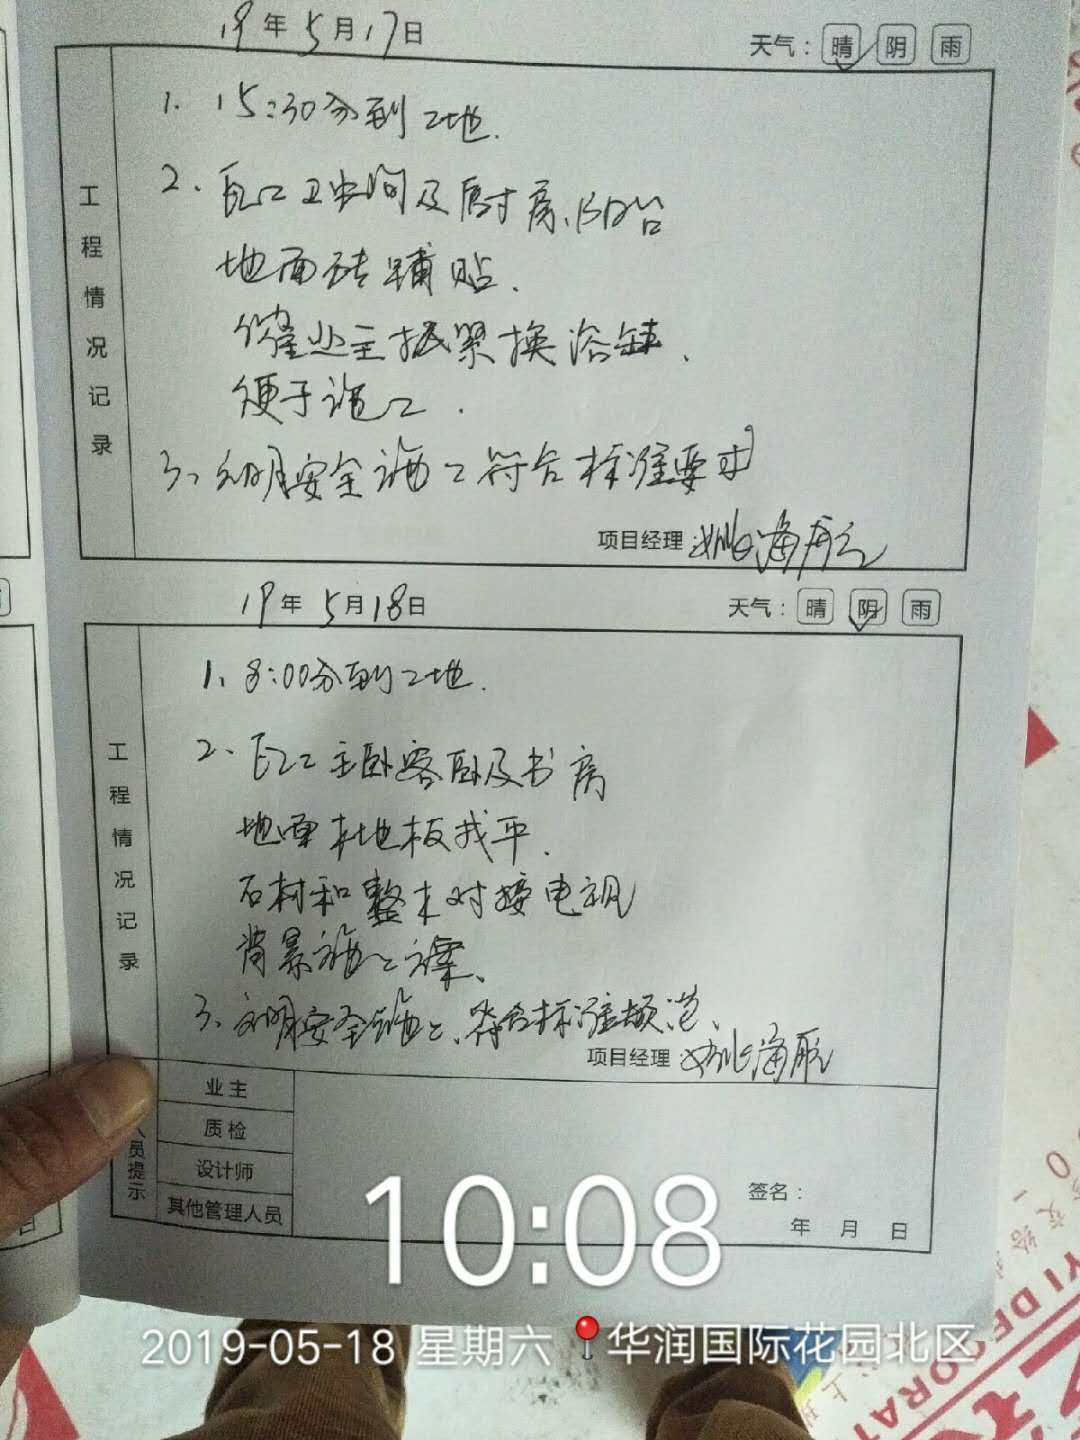 19年5月17日 天气：晴 阴 雨
工程情况记录
1. 15:30分到工地.
2. 瓦工卫生间及厨房、阳台
地面砖铺贴.
催业主抓紧换浴缸、
便于施工.
3、文明安全施工符合标准要求
项目经理：姚海航
19年5月18日 天气：晴 阴 雨
工程情况记录
1、8:00分到工地.
2、瓦工主卧客卧及书房
地面木地板找平.
石材和整木对接电视
背景施工方案、
3、文明安全施工、符合标准规范、
项目经理：姚海航
员提示
业主
质检
设计师
其他管理人员
签名：
年 月 日
10:08
2019-05-18 星期六 华润国际花园北区